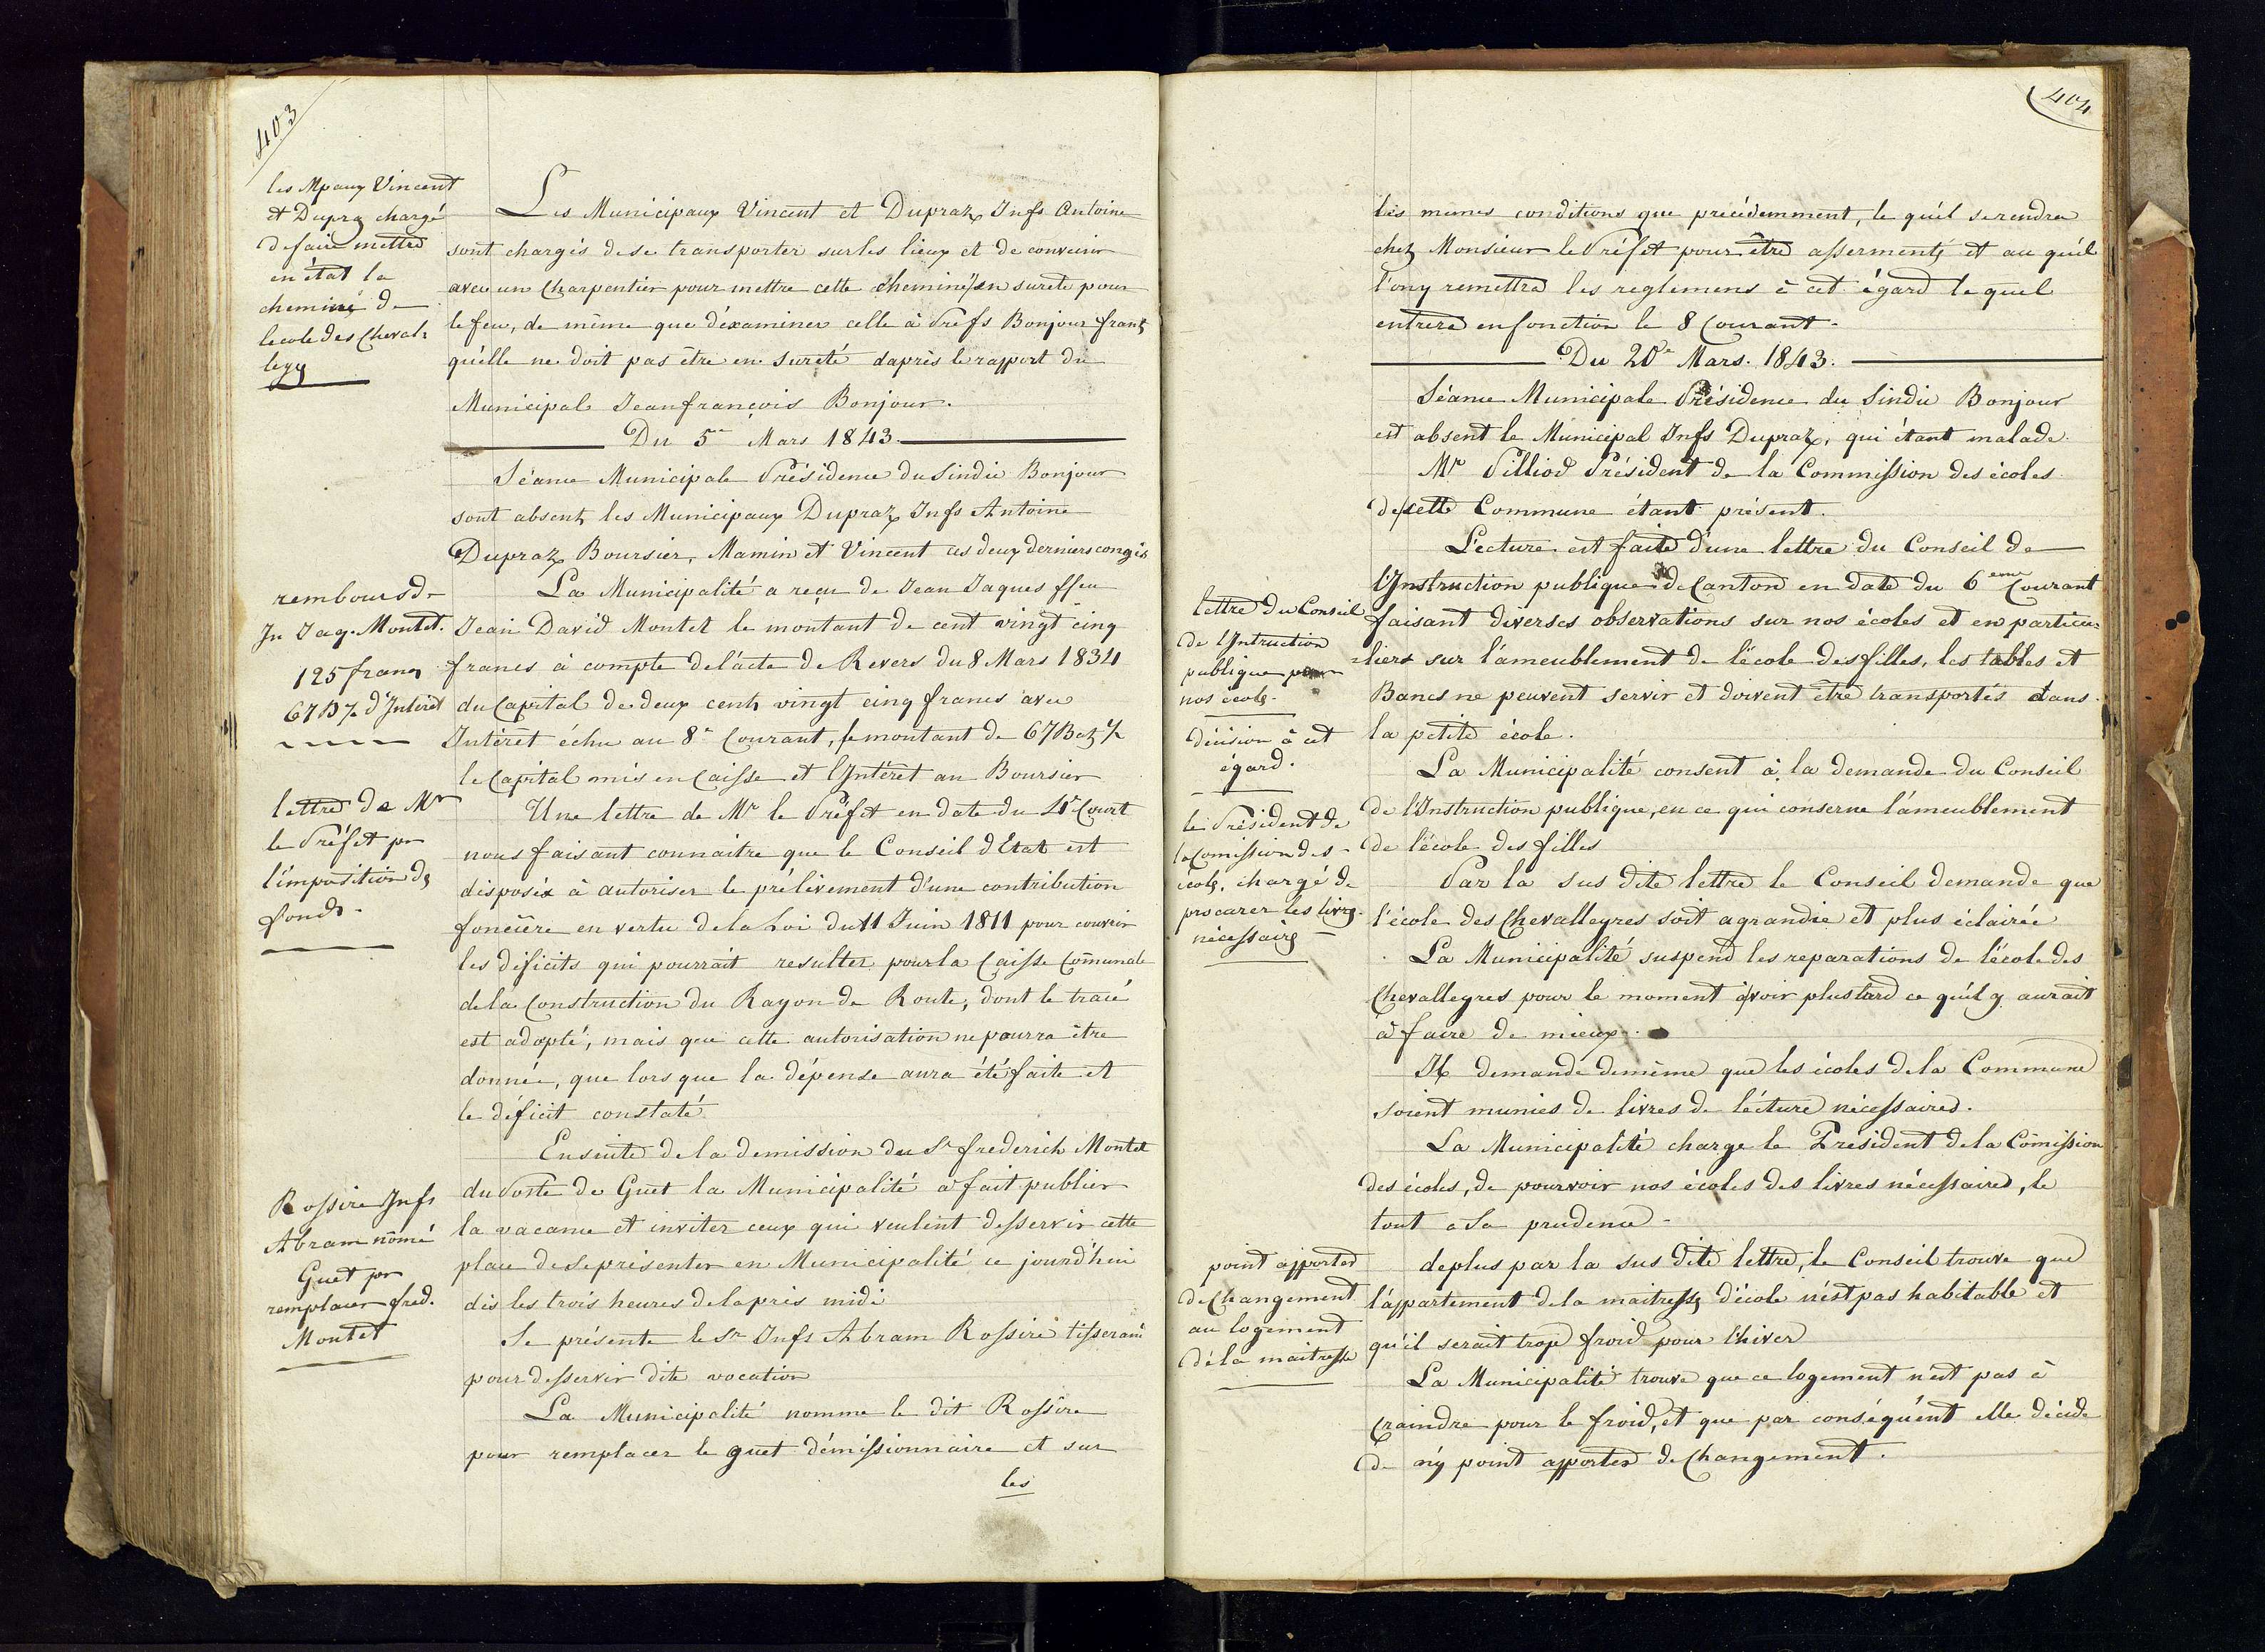 403
les Mpaux Vincent
et Dupraz chargé
de faire mettre
en état la
cheminé de
lecole des Cheval-
legrs
Les Municipaux Vincent et Dupraz Jnfs Antoine
sont chargés de se transporter sur les lieux et de convenir
avec un Charpentier pour mettre cette cheminé en sureté pour
le feu, de même que d'éxaminer celle à Prefs Bonjour franç
qu'elle ne doit pas être en sureté daprès le rapport du
Municipal Jeanfrançois Bonjour.
Du 5e Mars 1843.
Séance Municipale Présidence du Sindic Bonjour
sont absents les Municipaux Dupraz Jnfs Antoine
Dupraz Boursier, Mamin et Vincent ces deux derniers congés
rembours de
Jn Jaq. Montet.
125 francs
67 B ½ d'Intérêt
La Municipalité a reçu de Jean Jaques ffeu
Jean David Montet le montant de cent vingt cinq
francs à compte de l'acte de Revers du 8 Mars 1834
du Capital de deux cents vingt cinq francs avec
Intérêt échu au 8e Courant, le montant de 67 Batz ½
le Capital mis en Caisse et l'Intérêt au Boursier
lettre de Mr
le Préfet pr
l'imposition ds
fonds.
Une lettre de Mr le Préfet en date du 4e Court
nous faisant connaitre que le Conseil d'Etat est
disposée à autoriser le prélèvement d'une contribution
foncière en vertu de la Loi du 11 Juin 1811 pour couvrir
les déficits qui pourrait resulter pour la Caisse Comunale
de la Construction du Rayon de Route, dont le tracé
est adopté, mais que cette autorisation ne pourra être
donnée, que lors que la dépense aura été faite et
le déficit constaté
Rossire Jnfs
Abram nomé
Guet pr
remplacer fred.
Montet
Ensuite de la demission du Sr frederich Montet
du Poste de Guet la Municipalité a fait publier
la vacance et inviter ceux qui veulent desservir cette
place de se présenter en Municipalité ce jourd'hui
dès les trois heures de laprès midi
Se présente le Sr Jnfs Abram Rossire tisserand
pour desservir dite vocation
La Municipalité nomme le dit Rossire
pour remplacer le guet démissionnaire et sur
les
404
les memes conditions que précédemment, le quél se rendra
chez Monsieur le Préfet pour être assermenté et au quél
l'ony remettra les reglemens à cet égard le quel
entrera en fonction le 8 Courant.
Du 20e Mars. 1843.
Séance Municipale Présidence du Sindic Bonjour
est absent le Municipal Jnfs Dupraz, qui étant malade.
Mr Pilliod Président de la Commission des écoles
de cette Commune étant présent.
Lecture est faite d'une lettre du Conseil de
l'Instruction publique de Canton en date du 6eme Courant
faisant diverses observations sur nos écoles et en particu-
-liers sur l'ameublement de l'école des filles, les tables et
Bancs ne peuvent servir et doivent être transportés dans
la petite école.
lettre du Conseil
de l'Intruction
publique pour
nos écols.
Décision à cet
égard.
La Municipalité consent à la demande du Conseil
de l'Instruction publique, en ce qui conserne l'ameublement
de l'école des filles
le Président de
la Comission des
écols, chargé de
procurer les livrs
nécessairs
Par la sus dite lettre le Conseil demande que
l'école des Chevallegres soit agrandie et plus éclairée
La Municipalité suspend les reparations de l'école des
Chevallegres pour le moment à voir plus tard ce qu'il y aurait
à faire de mieux.
Il demande de même que les écoles de la Commune
soient munies de livres de lécture nécessaires.
La Municipalité charge le Président de la Comission
des écoles, de pourvoir nos écoles des livres nécessaires, le
tout a sa prudence
point apporter
de Changement
au logement
de la maitresse
de plus par la sus dite lettre, le Conseil trouve que
l'appartement de la maitresse d'école n'est pas habitable et
qu'il serait trop froid pour l'hiver
La Municipalité trouve que ce logement n'est pas à
Craindre pour le froid, et que par conséquent elle décide
de n'y point apporter de Changement.